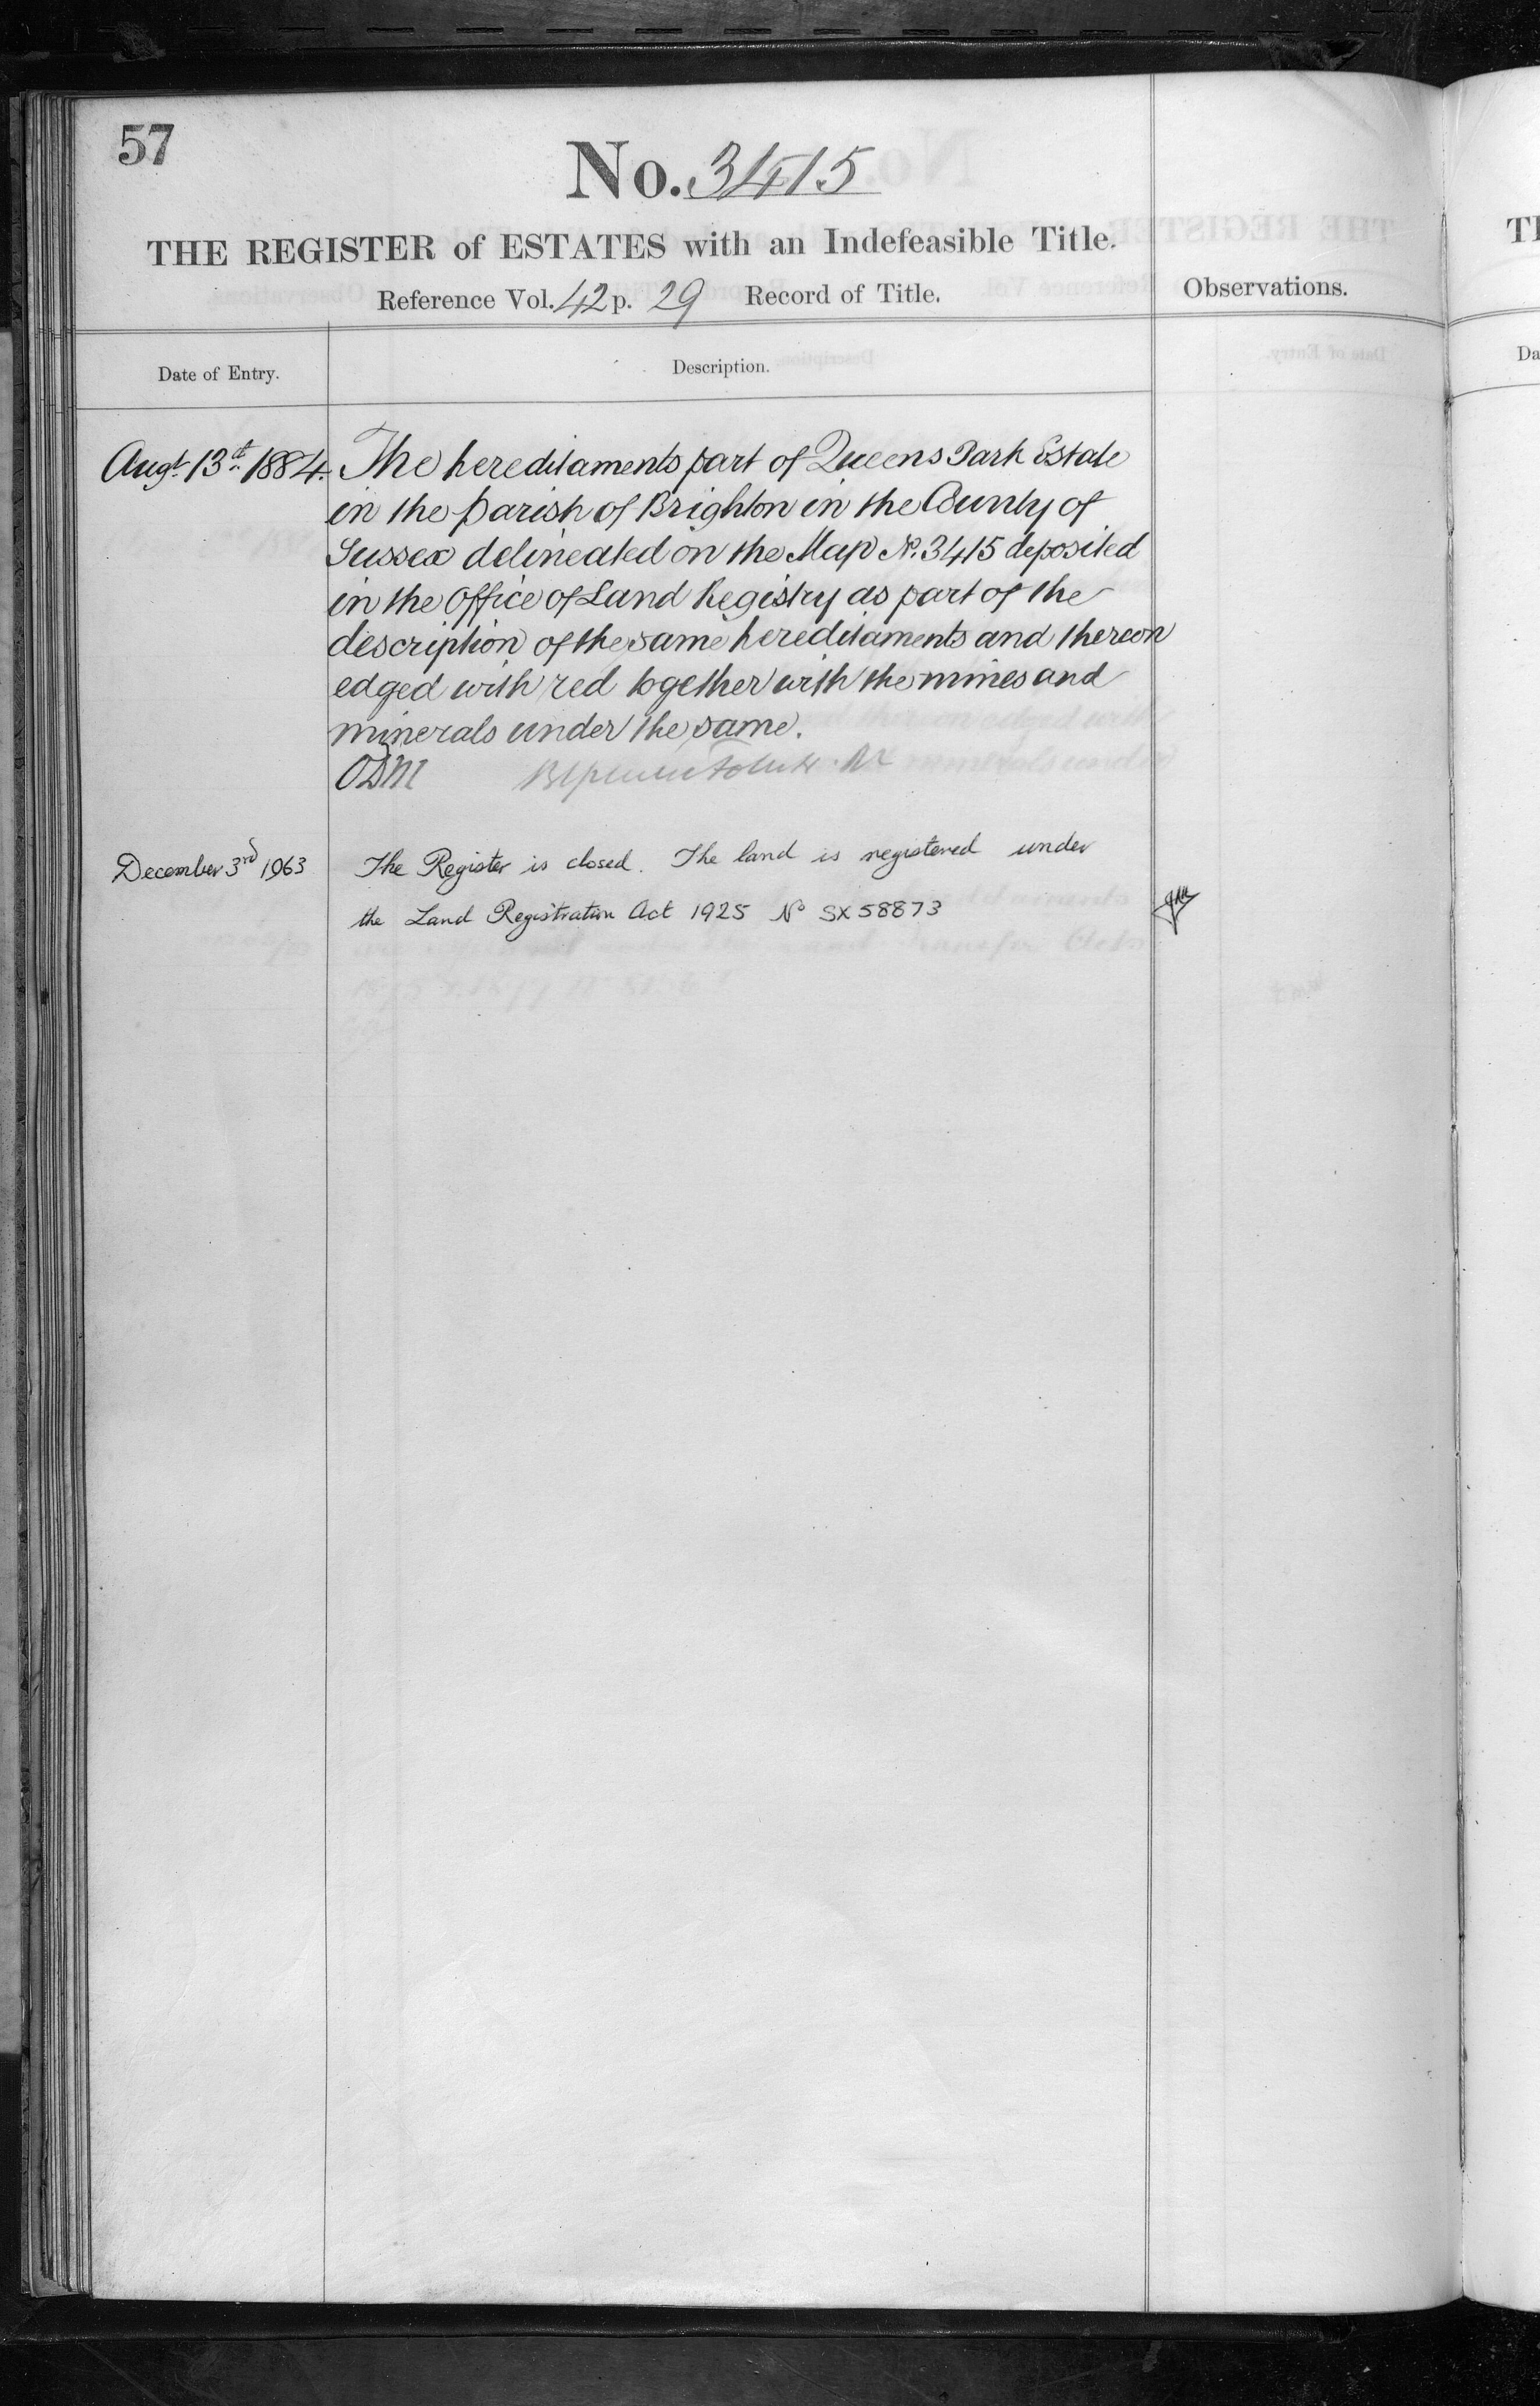 57
No. 3415
THE REGISTER of ESTATES with an Indefeasible Title.
Reference Vol. 42 p. 29 Record of Title.
Observations.
Date of Entry.
Description.
Augt. 13th. 1884. The hereditaments part of Queens Park Estate
in the parish of Brighton in the County of
Sussex delineated on the Map No. 3415 deposited
in the Office of Land Registry as part of the
description of the same hereditaments and thereon
edged with red together with the mines and
minerals under the same.
December 3rd 1963 The Register is closed. The land is registered under
the Land Registration Act 1925 No SX58873